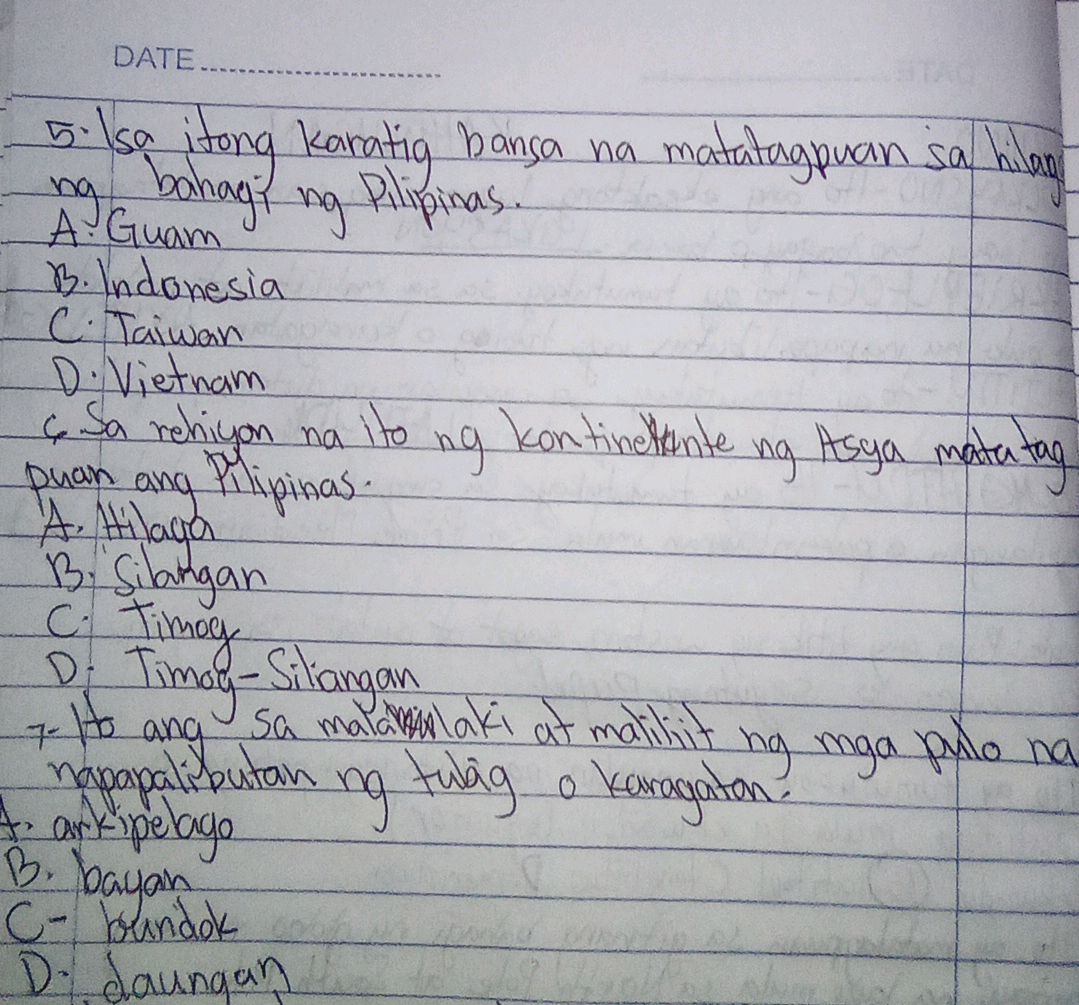 DATE
5. Isa itong karatig bansa na matatagpuan sa hilag
ng bahagi ng Pilipinas.
A. Guam
B. Indonesia
C. Taiwan
D. Vietnam
6. Sa rehiyon na ito ng kontinente ng Asya matatag
puan ang Pilipinas.
A. Hilaga
B. Silangan
C. Timog
D. Timog-Silangan
7- Ito ang sa malalaki at maliliit ng mga pulo na
napapalibutan ng tubig o karagatan.
A. arkipelago
B. bayan
C- bundok
D. daungan